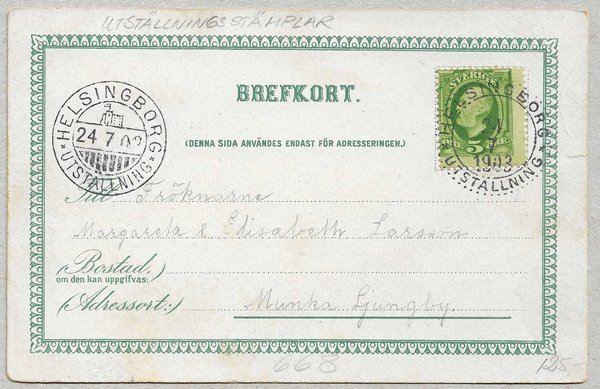 UTSTÄLLNINGSSTÄMPLAR
BREFKORT.
(DENNA SIDA ANVÄNDES ENDAST FÖR ADRESSERINGEN.)
HELSINGBORG
24 7 03
*UTSTÄLLNING*
SVERIGE
5
HELSINGBORG
1903
*UTSTÄLLNING*
Till Fröknarne
Margareta & Elisabeth Larsson
(Bostad,
om den kan uppgifvas:)
(Adressort:)
Munka Ljungby.
668
125:-